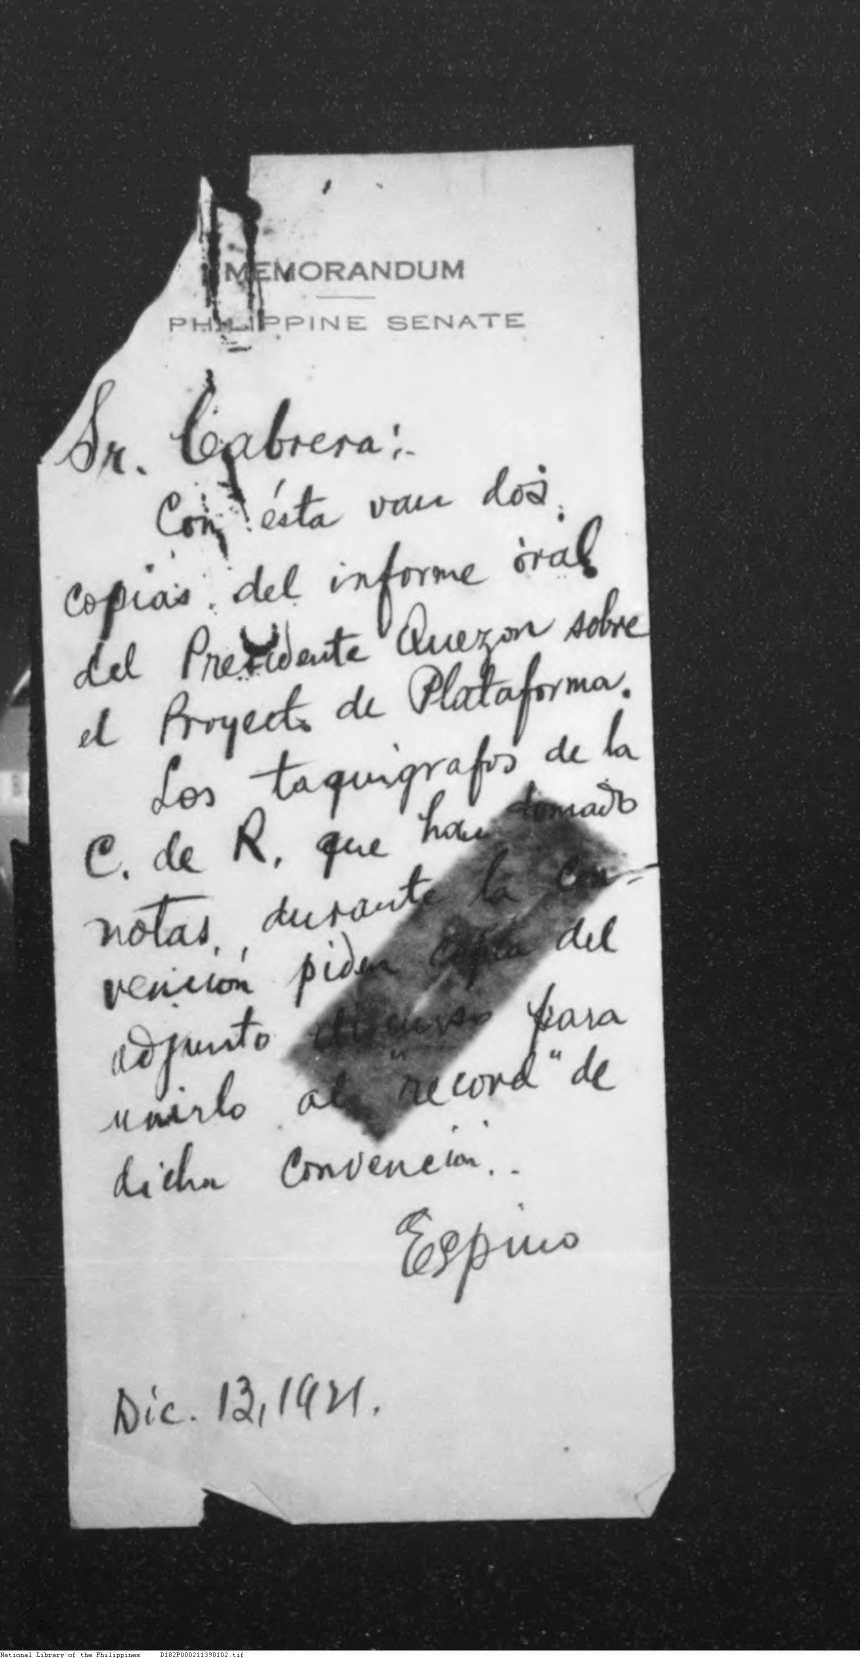 MEMORANDUM
PHILIPPINE SENATE
Sr. Cabrera:
Con ésta van dos
copias del informe oral
del Presidente Quezon sobre
el Proyecto de Plataforma.
Los taquigrafos de la
C. de R. que han tomado
notas durante la con-
vención piden copia del
adjunto discurso para
unirlo al "record" de
dicha convención.
Espino
Dic. 13, 1921.
National Library of the Philippines D182P000211398102.tif